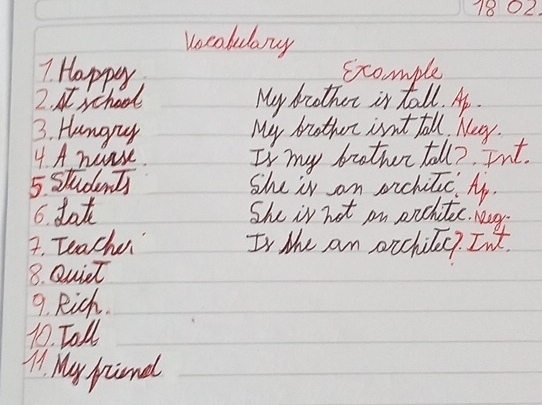 18 02
Vocabulary
Example
1. Happy
2. At school
3. Hungry
4. A nurse.
5. Students
6. Late
7. Teacher
8. Quiet
9. Rich.
10. Tall
11. My friend
My brother is tall. Ap.
My brother isnt tall. Neg.
Is my brother tall?. Int.
She is an architec. Ap.
She is not an architec. Neg.
Is she an architec? Int.